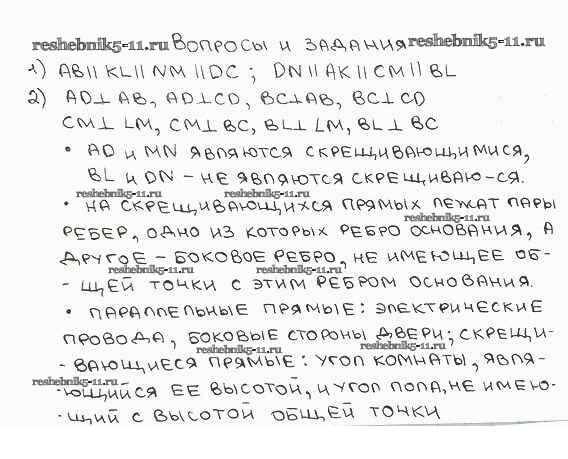 reshebnik5-11.ru Вопросы и задания reshebnik5-11.ru
1) AB || KL || NM || DC ; DN || AK || CM || BL
2) AD⊥AB, AD⊥CD, BC⊥AB, BC⊥CD
CM⊥LM, CM⊥BC, BL⊥LM, BL⊥BC
• AD и MN являются скрещивающимися,
BL и DN – не являются скрещиваю-ся.
reshebnik5-11.ru reshebnik5-11.ru
• на скрещивающихся прямых лежат пары
reshebnik5-11.ru
ребер, одно из которых ребро основания, а
другое – боковое ребро, не имеющее об-
reshebnik5-11.ru reshebnik5-11.ru
- щей точки с этим ребром основания.
• параллельные прямые: электрические
провода, боковые стороны двери; скрещи-
reshebnik5-11.ru reshebnik5-11.ru
- вающиеся прямые: угол комнаты, явля-
reshebnik5-11.ru
- ющийся ее высотой, и угол пола, не имею-
- щий с высотой общей точки